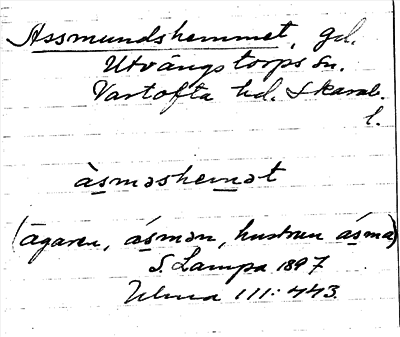 Assmundshemmet, gd.
Utvängstorps sn.
Vartofta hd. Skarab.
l.
àsməshemət
(ägaren, ásmən, hustrun ásma)
S. Lampa 1897
Ulma 111:443.